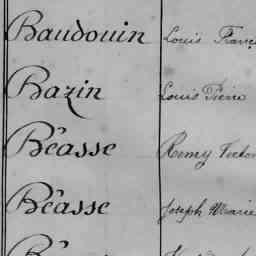 Baudouin Louis Franç
Bazin Louis Pierre
Béasse Remy Victor
Béasse Joseph Marie